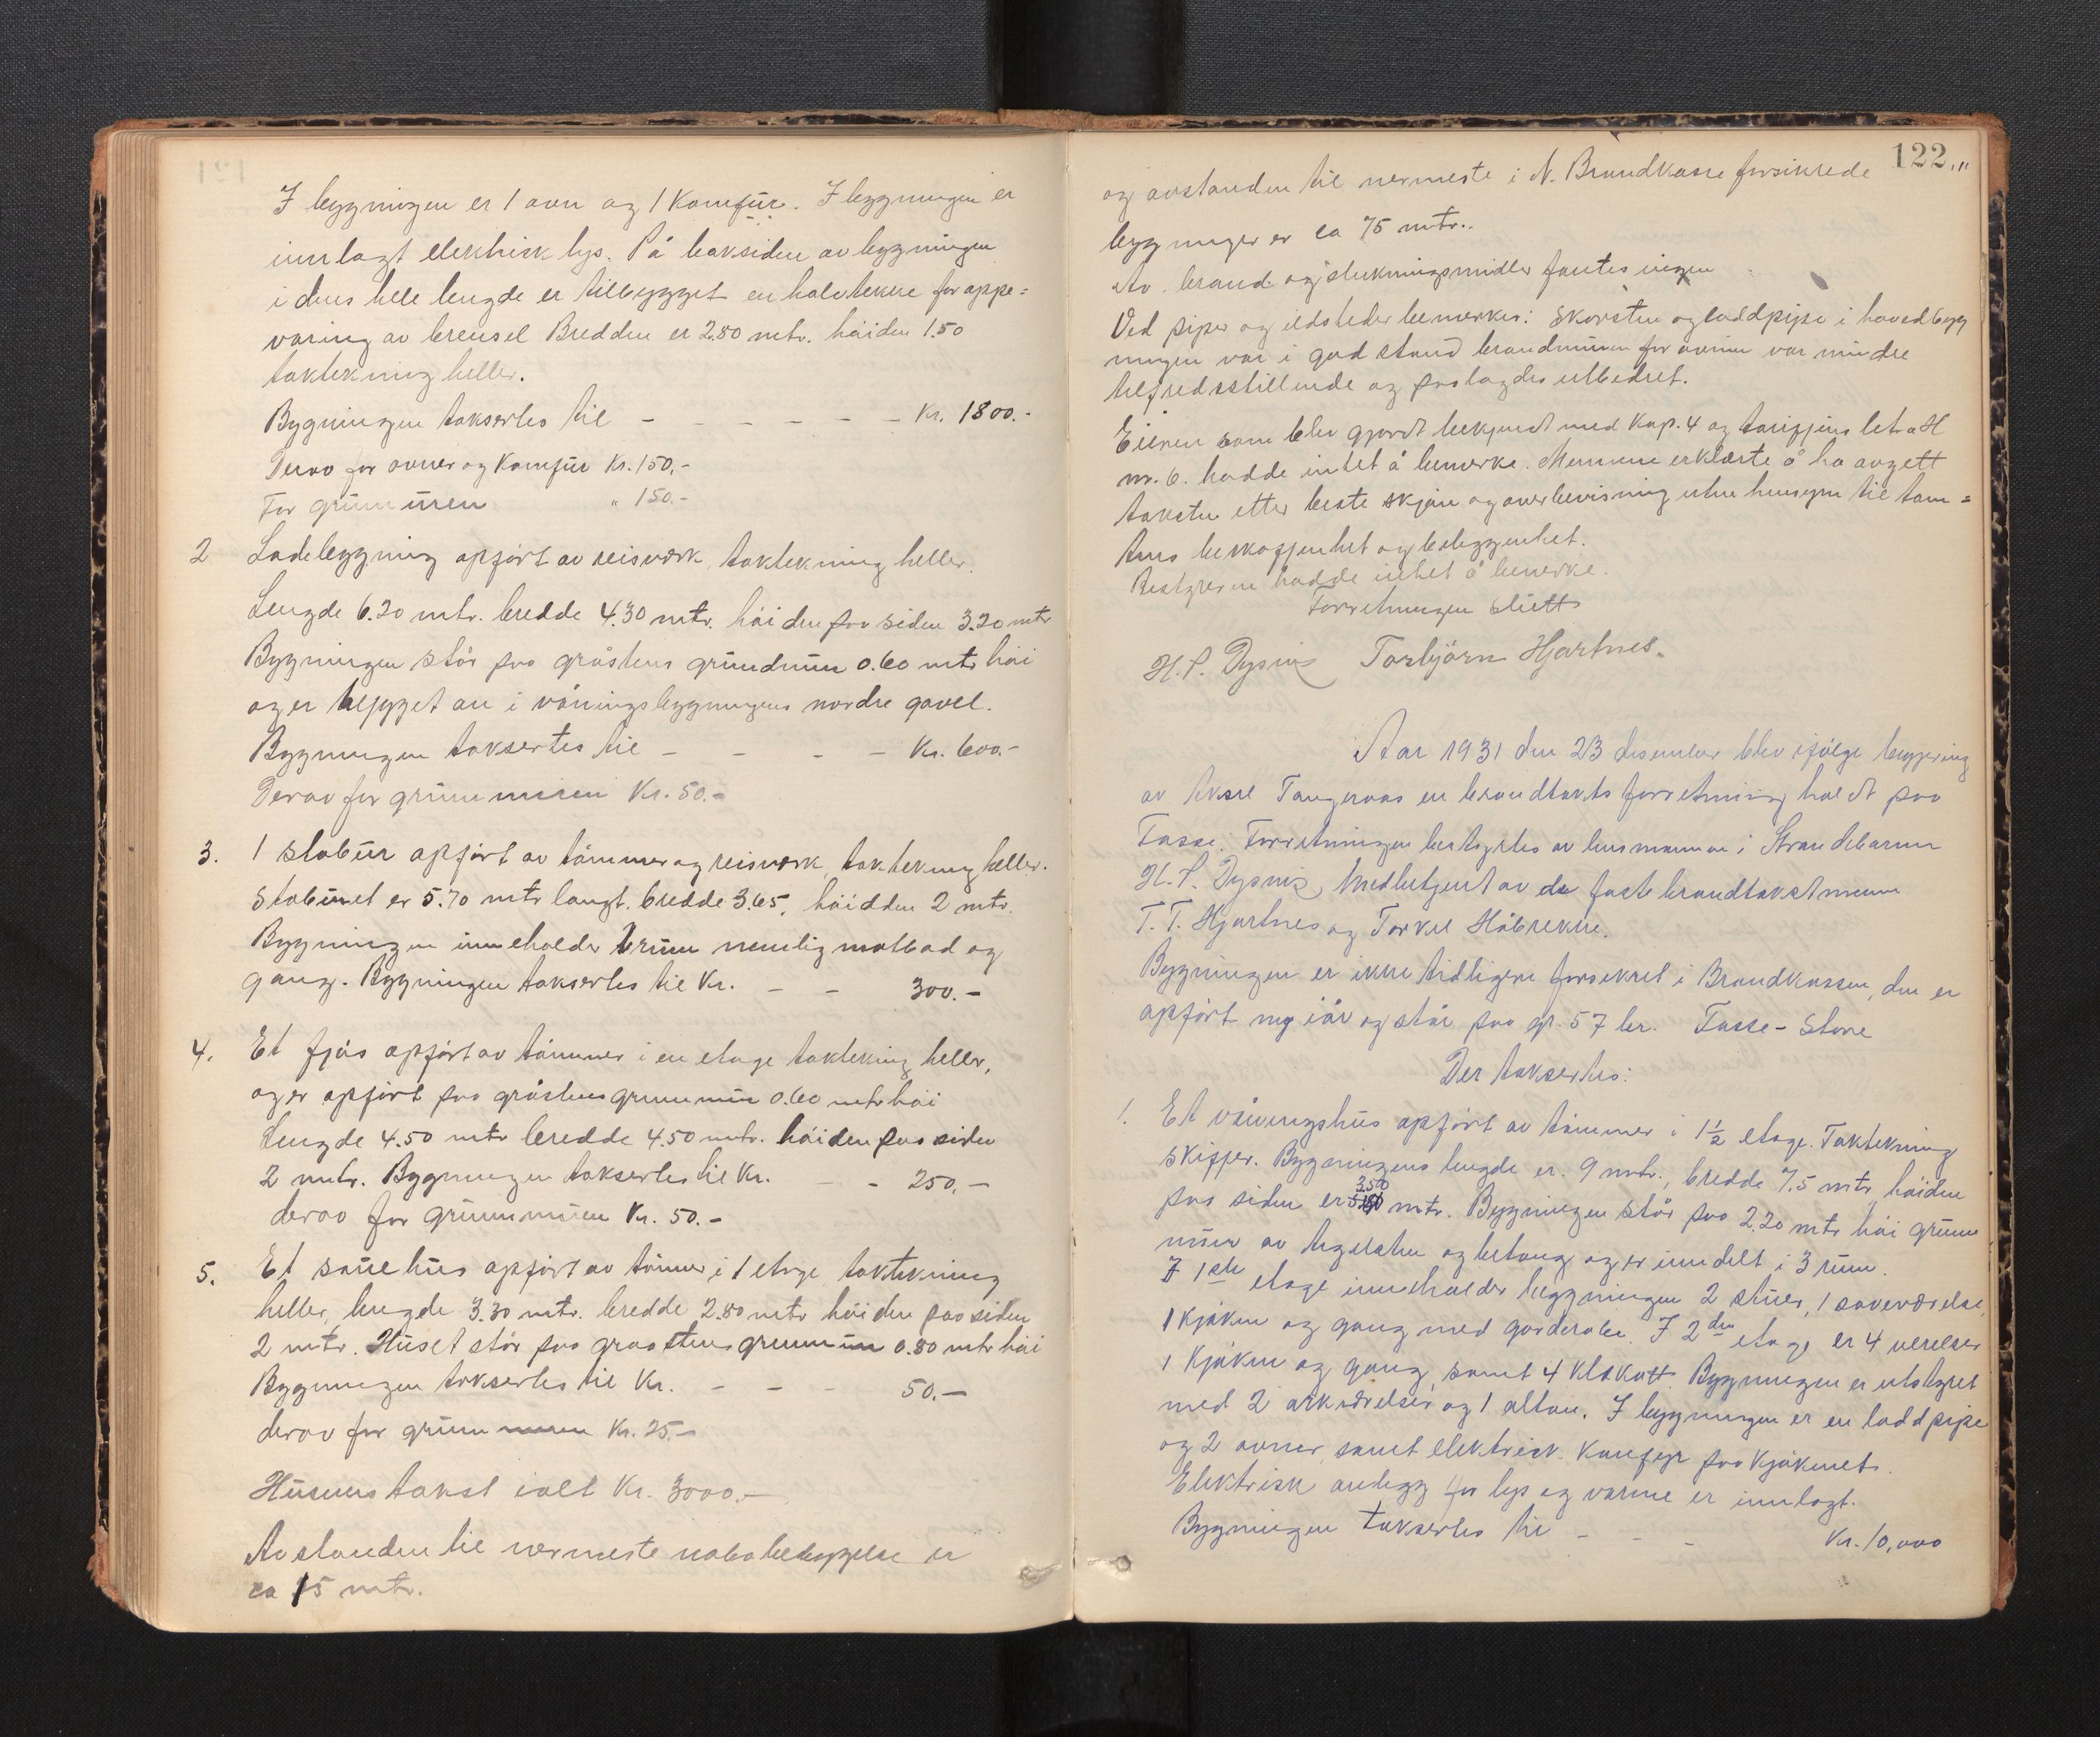 I bygningen er 1 ovn og 1 Komfür. I bygningen er
innlagt elektrisk lys. På baksiden av bygningen
i dens hele lengde er tilbygget en halvtekke for oppe=
varing av brensel Bredden er 2.80 mtr. höiden 1.50
taktekning heller.
Bygningen takseres til - - - - - - Kr. 1800.-
Derav for ovner og Komfür Kr. 150.-
For grünmüren " 150.-
2 Ladebygning opfört av reisverk, taktekning heller.
Lengde 6.20 mtr. bredde 4.30 mtr. höiden paa siden 3.20 mtr
Bygningen står paa gråstens gründmür 0.60 mtr. höi
og er bygget an i våningsbygningens nordre gavel.
Bygningen taksertes til - - - - Kr. 600.-
Derav for grünmüren Kr. 50.-
3. 1 stabür opfört av tömmer og reisverk, taktekning heller.
Stabüret er 5.70 mtr langt. bredde 3.65, höidden 2 mtr.
Bygningen inneholder 2 rüm nemlig matbod og
gang. Bygningen taksertes til Kr. - - 300.-
4. Et fjös opfört av tömmer i en etage taktekning heller,
og er opfört paa gråstens grunnmür 0.60 mtr höi
Lengde 4.50 mtr bredde 4.50 mtr. höiden paa siden
2 mtr. Bygningen taksertes til Kr. - - 250.-
derav for grünnmüren Kr. 50.-
5. Et sauehüs opfört av tömmer i 1 etage taktekning
heller, lengde 3.30 mtr. bredde 2.80 mtr höiden paa siden
2 mtr. Hüset står paa graastens grunnmür 0.80 mtr höi
Bygningen taksertes til Kr. - - - 50.-
derav for grünnmuren Kr. 25.-
Hüsenes takst ialt Kr. 3000.-
Avstanden til nermeste nabobebyggelse er
ca 15 mtr.
122.
og avstanden til nermeste i N. Brandkasse forsikrede
bygninger er ca 75 mtr..
Av brand og slukningsmidler fantes ingen
Ved piper og ildsteder bemerkes: Skorsten og loddpipe i hovedbyg
ningen var i god stand brandmüren for ovnen var mindre
tilfredsstillende og paalagdes utbedret.
Eieren som blev gjordt bekjendt med Kap. 4 og tariffens litra H
nr. 6. hadde intet å bemerke. Mennene erklærte å ha avgett
taksten etter beste skjön og overbevisning uten hensyn til tom=
tens beskaffenhet og beliggenhet.
Bestyreren hadde intet å bemerke.
Forretningen slutt
H. P. Dysvig Torbjörn Hjartnes.
Aar 1931 den 23 desember blev ifölge begjering
av Aksel Tangeraas en brandtakstforretning holdt paa
Tasse. Forretningen bestyrtes av lensmannen i Strandebarm
H. P. Dysvig, medbetjent av de faste brandtakstmenn
T. T. Hjartnes og Torkel Håbrekke.
Bygningen er ikke tidligere forsekret i Brandkassen, den er
opfört ny iår og står paa gr. 57 br. Tasse- Store
Der taksertes:
1. Et våningshüs opfört av tömmer i 1½ etage. Taktekning
skiffer. Bygningens lengde er. 9 mtr., bredde 7.5 mtr, höiden
paa siden er 3.50 mtr. Bygningen står paa 2.20 mtr höi grünn
mür av tegelsten og betong og er inndelt i 3 rüm.
I 1ste etage inneholder bygningen 2 stüer, 1 soveværelse,
1 kjöken og gang med garderobe. I 2den etage er 4 verelser
1 Kjöken og gang, samt 4 kläkott. Bygningen er utstyret
med 2 arkværelser og 1 altan. I bygningen er en loddpipe
og 2 ovner, samt elektrisk Komfyr paa Kjöknet.
Elektrisk anlegg for lys og varme er innlagt.
Bygningen taksertes til - - - Kr. 10,000